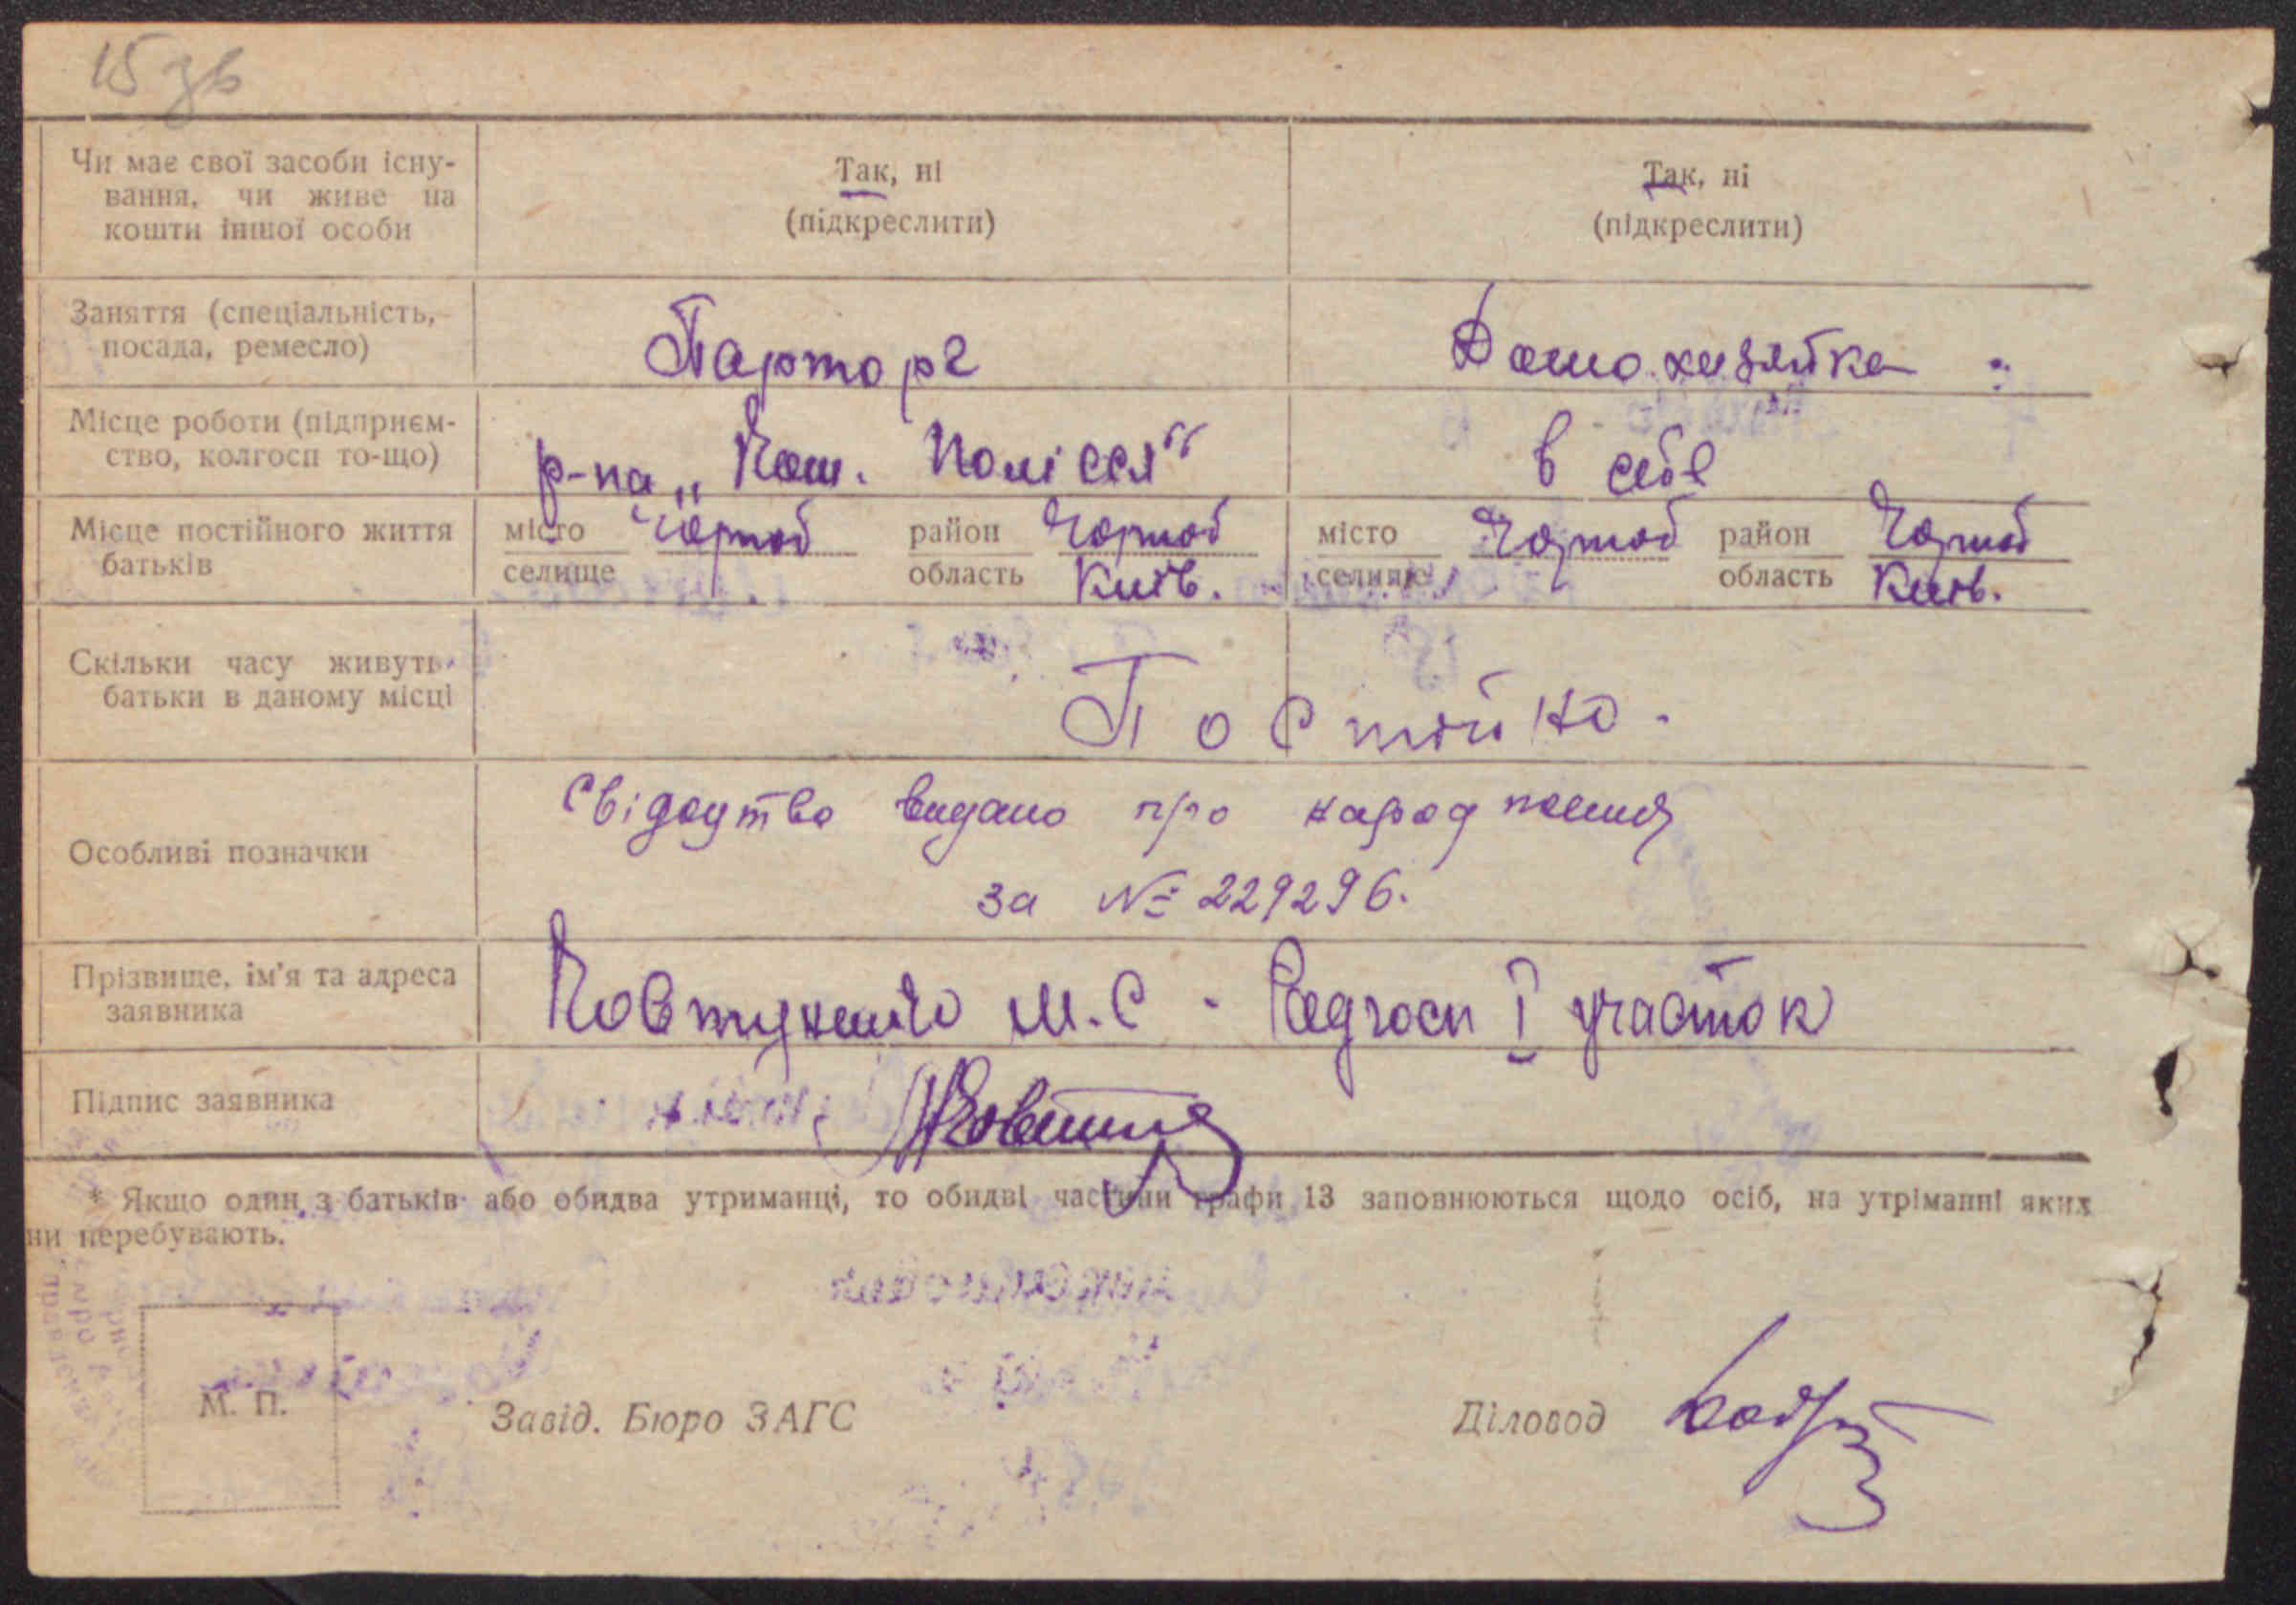 15 зв
Чи має свої засоби існу-
вання, чи живе на
кошти іншої особи
Так, ні
(підкреслити)
Так, ні
(підкреслити)
Заняття (спеціальність,
посада, ремесло)
Парторг
Домохазяйка
Місце роботи (підприєм-
ство, колгосп то-що)
р-па „Ком. Полісся“
в себе
Місце постійного життя
батьків
місто
селище
Чорноб
район
область
Чорноб
Київ.
місто
селище
Чорноб
район
область
Чорноб
Київ.
Скільки часу живуть
батьки в даному місці
Постійно.
Особливі позначки
Свідоцтво видано про народження
за № 229296.
Прізвище, ім'я та адреса
заявника
Ковтуненко М.С. Радгосп I участок
Підпис заявника
* Якщо один з батьків або обидва утриманці, то обидві частини графи 13 заповнюються щодо осіб, на утріманні яких
ни перебувають.
М. П.
Завід. Бюро ЗАГС
Діловод